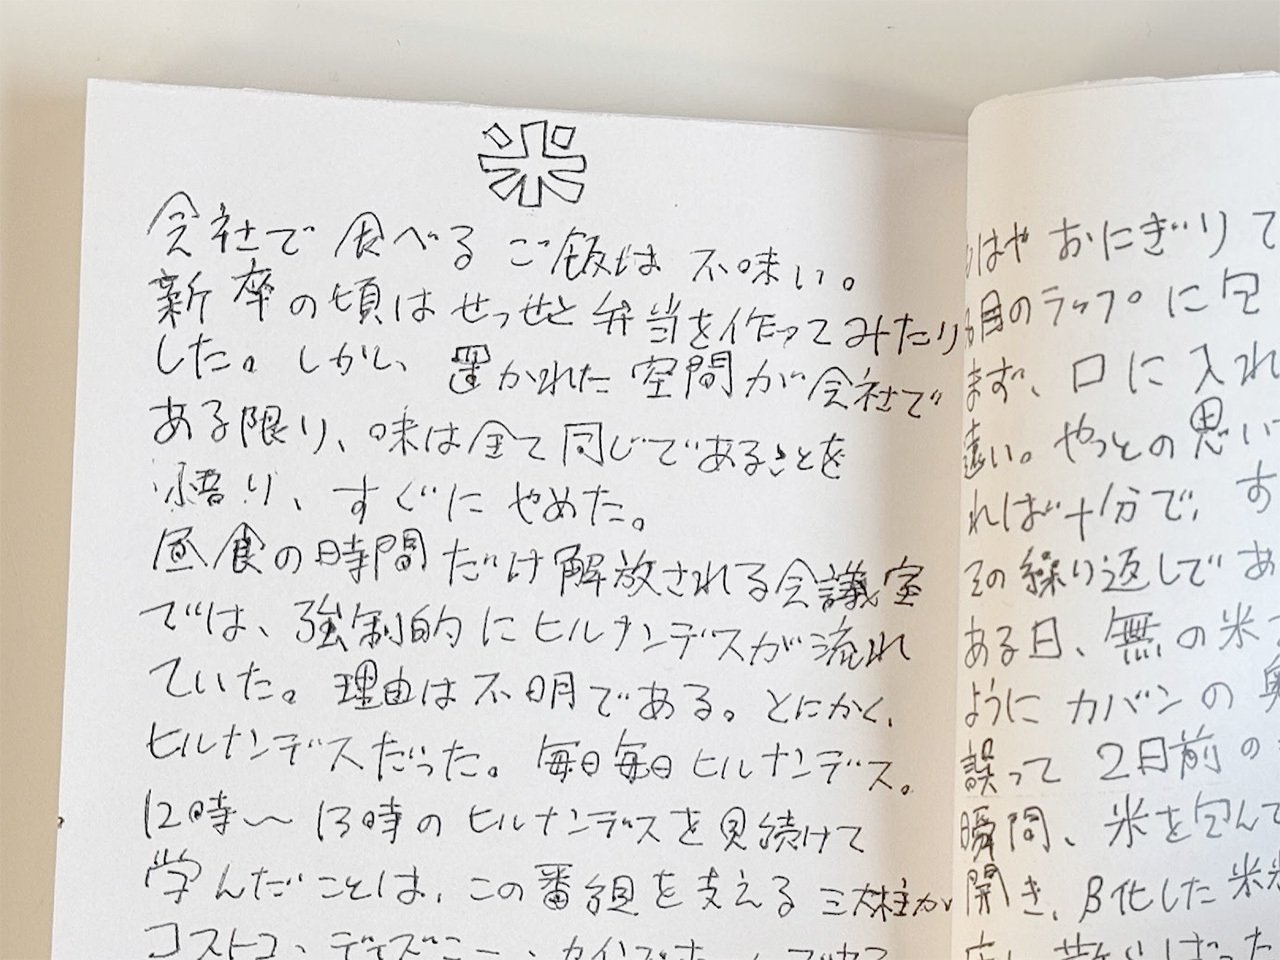 米
会社で食べるご飯は不味い。
新卒の頃はせっせと弁当を作ってみたり
した。しかし、置かれた空間が会社で
ある限り、味は全て同じであることを
悟り、すぐにやめた。
昼食の時間だけ解放される会議室
では、強制的にヒルナンデスが流れ
ていた。理由は不明である。とにかく、
ヒルナンデスだった。毎日毎日ヒルナンデス。
12時〜13時のヒルナンデスを見続けて
学んだことは、この番組を支える三大柱が
コストコ、ディズニー、
はや おにぎりて
目のラップに包
まず、口に入れ
遠い。やっとの思いで
れば十分で、す
その繰り返しであ
ある日、無の米
ようにカバンの奥
誤って2日前の
瞬間、米を包んで
開き、β化した米